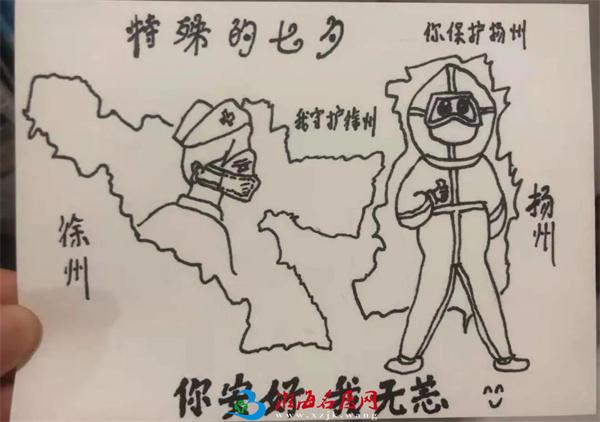 特殊的七夕
你保护扬州
我守护徐州
徐州
扬州
你安好 我无恙
淮海名医网
www.xzjk.wang